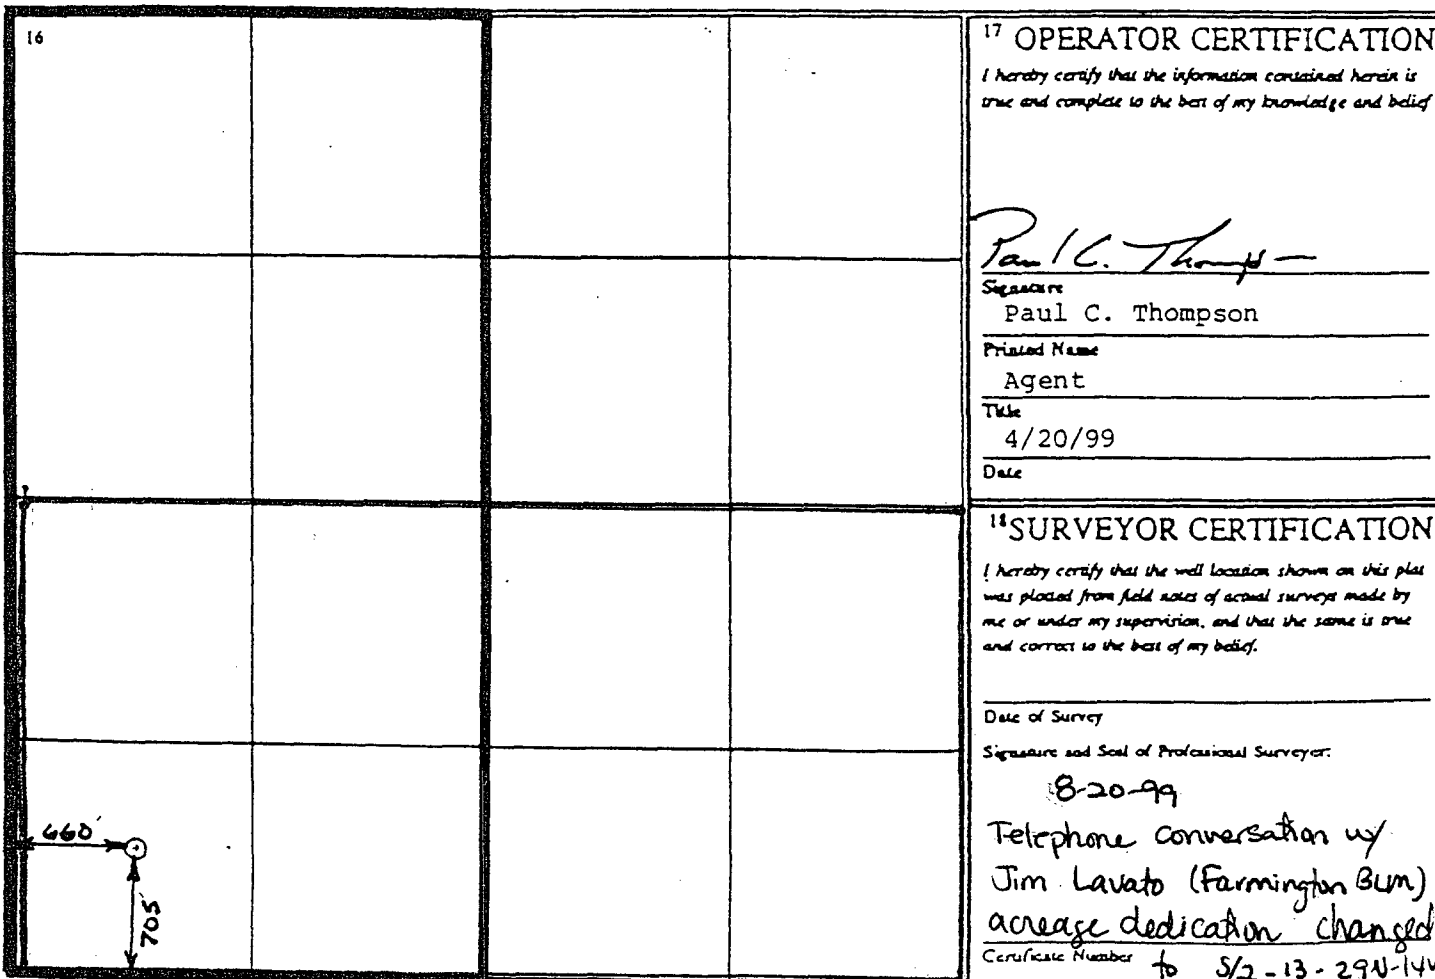 16
660'
705'
17 OPERATOR CERTIFICATION
I hereby certify that the information contained herein is
true and complete to the best of my knowledge and belief
Paul C. Thompson
Signature
Paul C. Thompson
Printed Name
Agent
Title
4/20/99
Date
18 SURVEYOR CERTIFICATION
I hereby certify that the well location shown on this plat
was plotted from field notes of actual surveys made by
me or under my supervision, and that the same is true
and correct to the best of my belief.
Date of Survey
Signature and Seal of Professional Surveyor:
8-20-99
Telephone conversation w/
Jim Lavato (Farmington BLM)
acreage dedication changed
Certificate Number to S/2-13-29N-14W